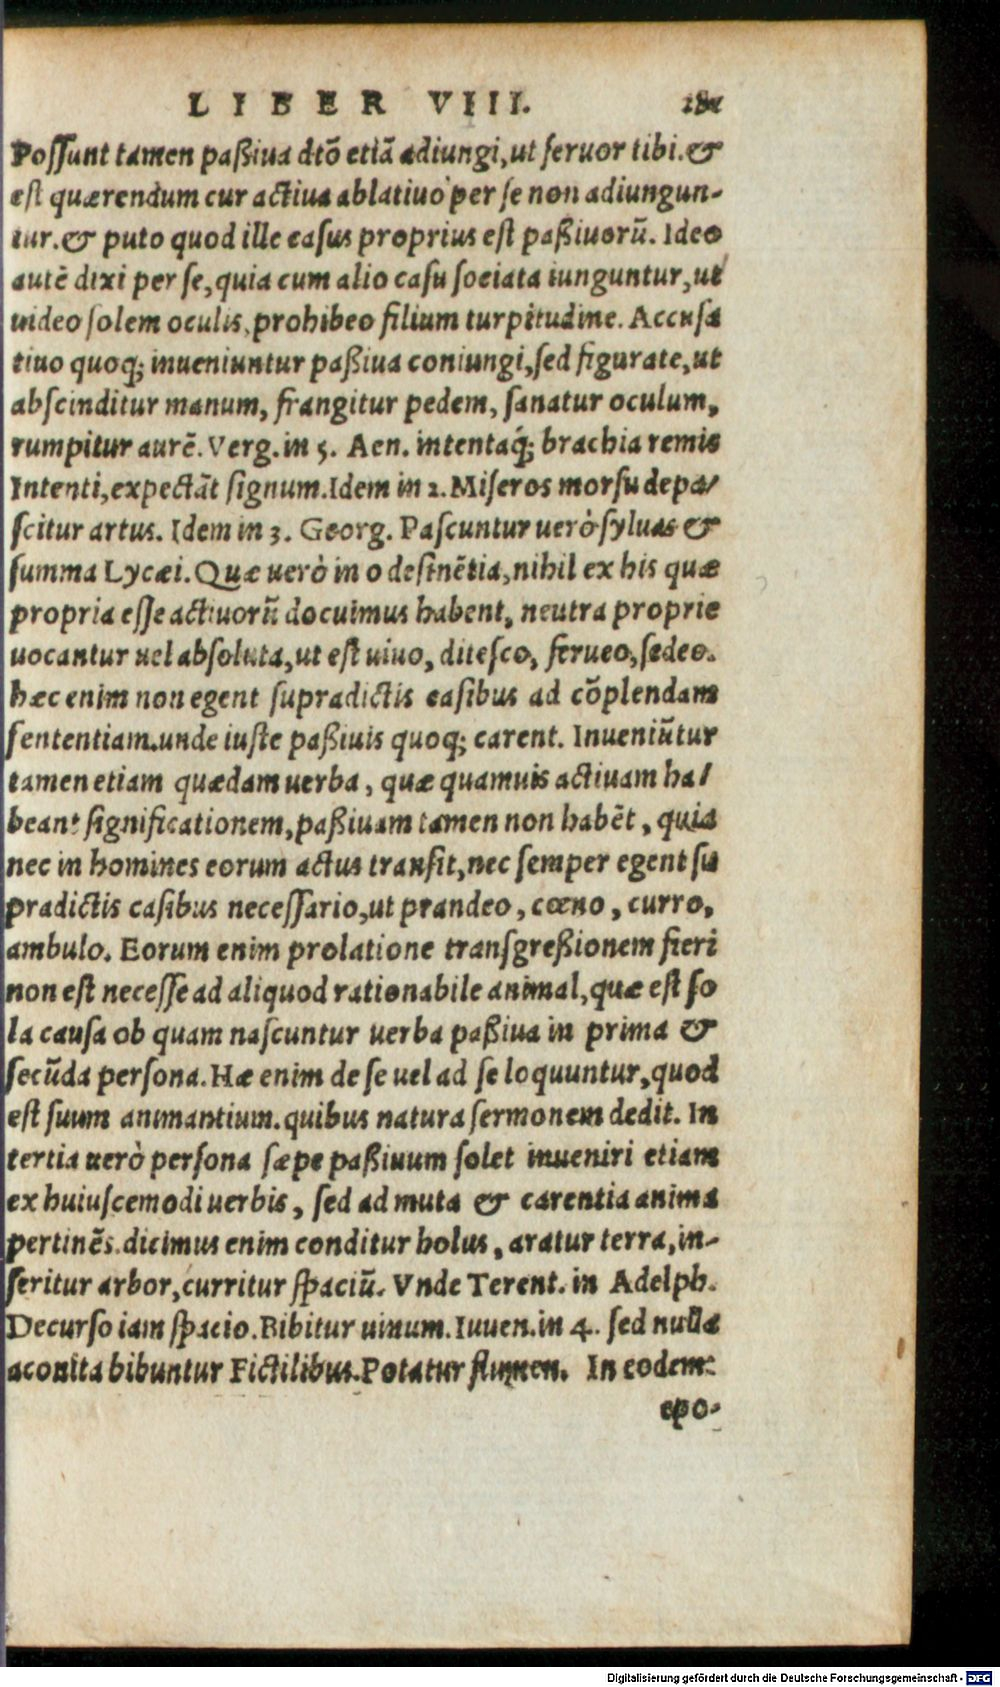 LIBER VIII.
Possunt tamen paßiua dtō etiā adiungi, ut feruor tibi. &
est quærendum cur actiua ablatiuo per se non adiungun-
tur. & puto quod ille casus proprius est paßiuorū. Ideo
autē dixi per se, quia cum alio casu sociata iunguntur, ut
uideo solem oculis, prohibeo filium turpitudine. Accusa
tiuo quoq; inueniuntur paßiua coniungi, sed figurate, ut
abscinditur manum, frangitur pedem, sanatur oculum,
rumpitur aurē. Verg. in 5. Aen. intentaq́; brachia remis
Intenti, expectāt signum. Idem in 2. Miseros morsu depa/
scitur artus. Idem in 3. Georg. Pascuntur uerò syluas &
summa Lycæi. Quæ uerò in o desinētia, nihil ex his quæ
propria esse actiuorū docuimus habent, neutra proprie
uocantur uel absoluta, ut est uiuo, ditesco, ferueo, sedeo.
hæc enim non egent supradictis casibus ad cōplendam
sententiam. unde iuste paßiuis quoq; carent. Inueniūtur
tamen etiam quædam uerba, quæ quamuis actiuam ha/
beant significationem, paßiuam tamen non habēt, quia
nec in homines eorum actus transit, nec semper egent su
pradictis casibus necessario, ut prandeo, cœno, curro,
ambulo. Eorum enim prolatione transgreßionem fieri
non est necesse ad aliquod rationabile animal, quæ est so
la causa ob quam nascuntur uerba paßiua in prima &
secūda persona. Hæ enim de se uel ad se loquuntur, quod
est suum animantium. quibus natura sermonem dedit. In
tertia uerò persona sæpe paßiuum solet inueniri etiam
ex huiuscemodi uerbis, sed ad muta & carentia anima
pertinēs. dicimus enim conditur holus, aratur terra, in-
seritur arbor, curritur spaciū. Vnde Terent. in Adelph.
Decurso iam spacio. Bibitur uinum. Iuuen. in 4. sed nulla
aconita bibuntur Fictilibus. Potatur flumen. In eodem:
epo-
Digitalisierung gefördert durch die Deutsche Forschungsgemeinschaft - DFG